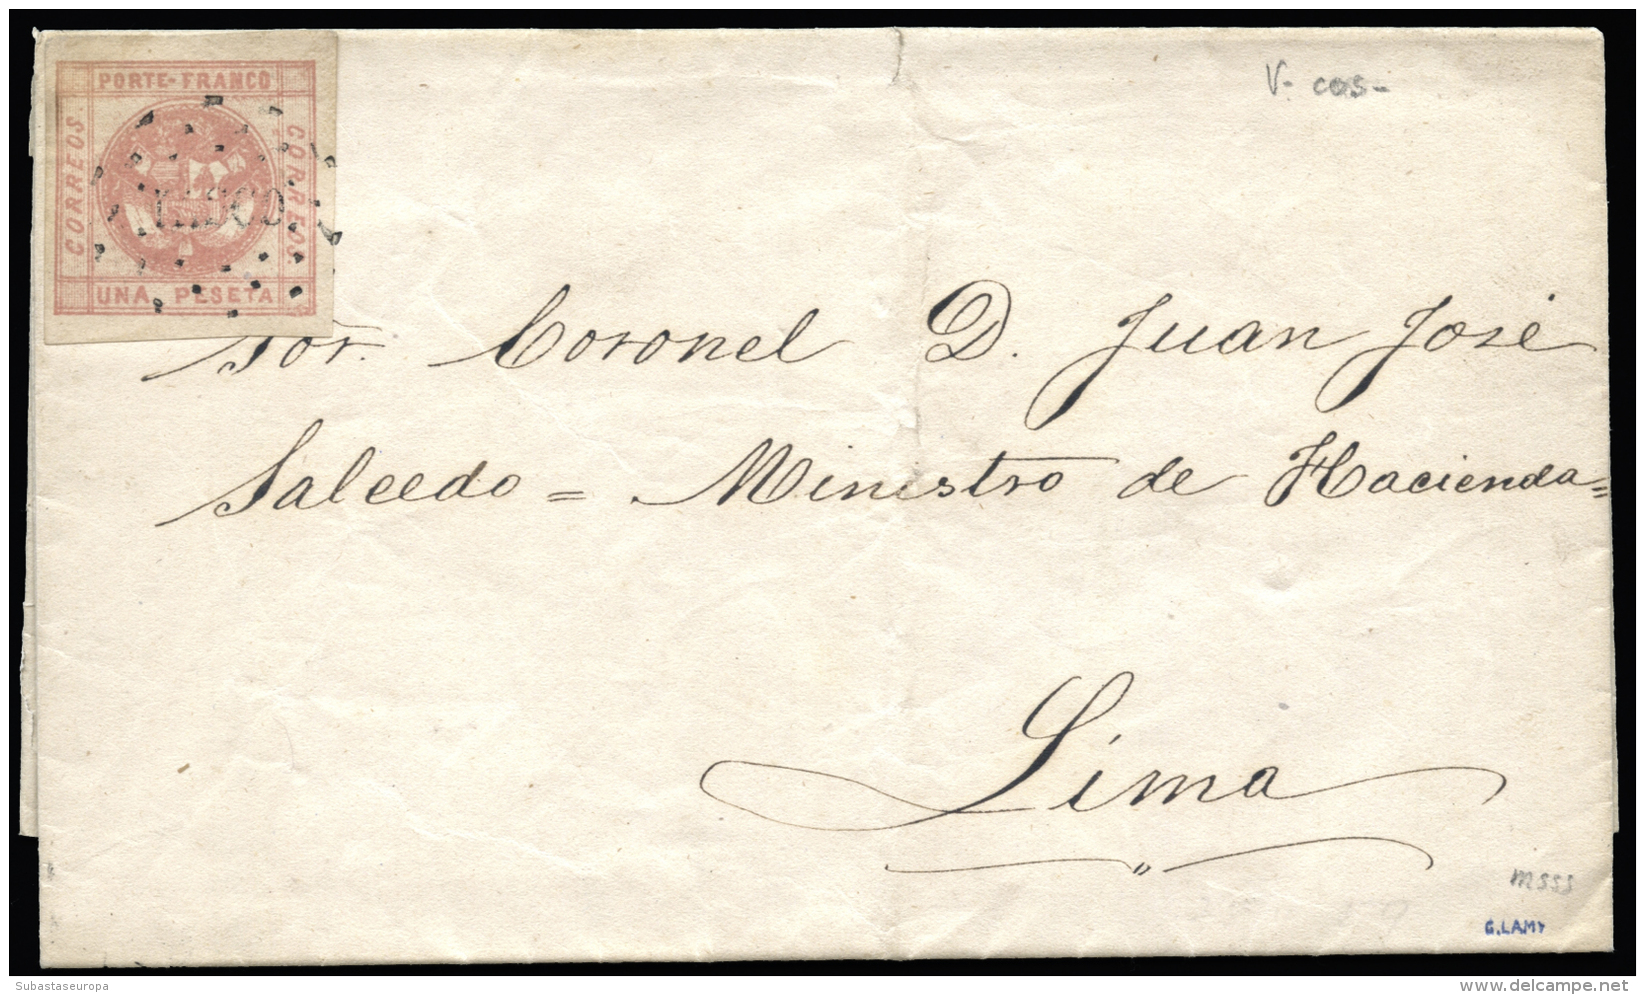 PORTE-FRANCO
CORREOS
CORREOS
UNA PESETA
V- cos-
Sor. Coronel D. Juan José
Salcedo = Ministro de Hacienda =
Lima
"
msss
G.LAMY
Subastaseuropa
delcampe.net